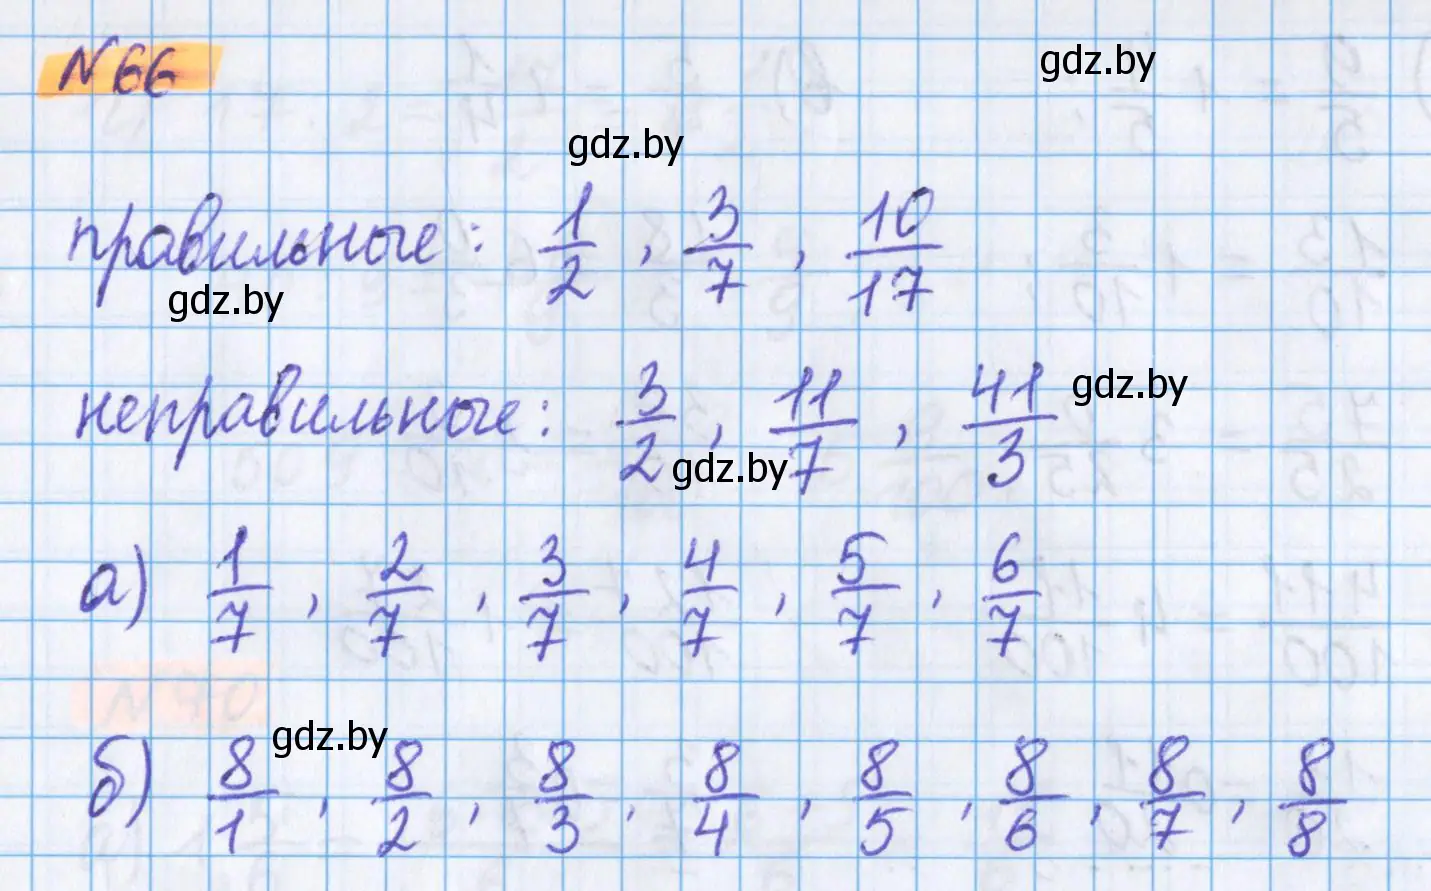 №66
gdz.by
gdz.by
правильные: 1/2, 3/7, 10/17
gdz.by
неправильные: 3/2, 11/7, 41/3
gdz.by
gdz.by
а) 1/7, 2/7, 3/7, 4/7, 5/7, 6/7
№70
gdz.by
б) 8/1, 8/2, 8/3, 8/4, 8/5, 8/6, 8/7, 8/8